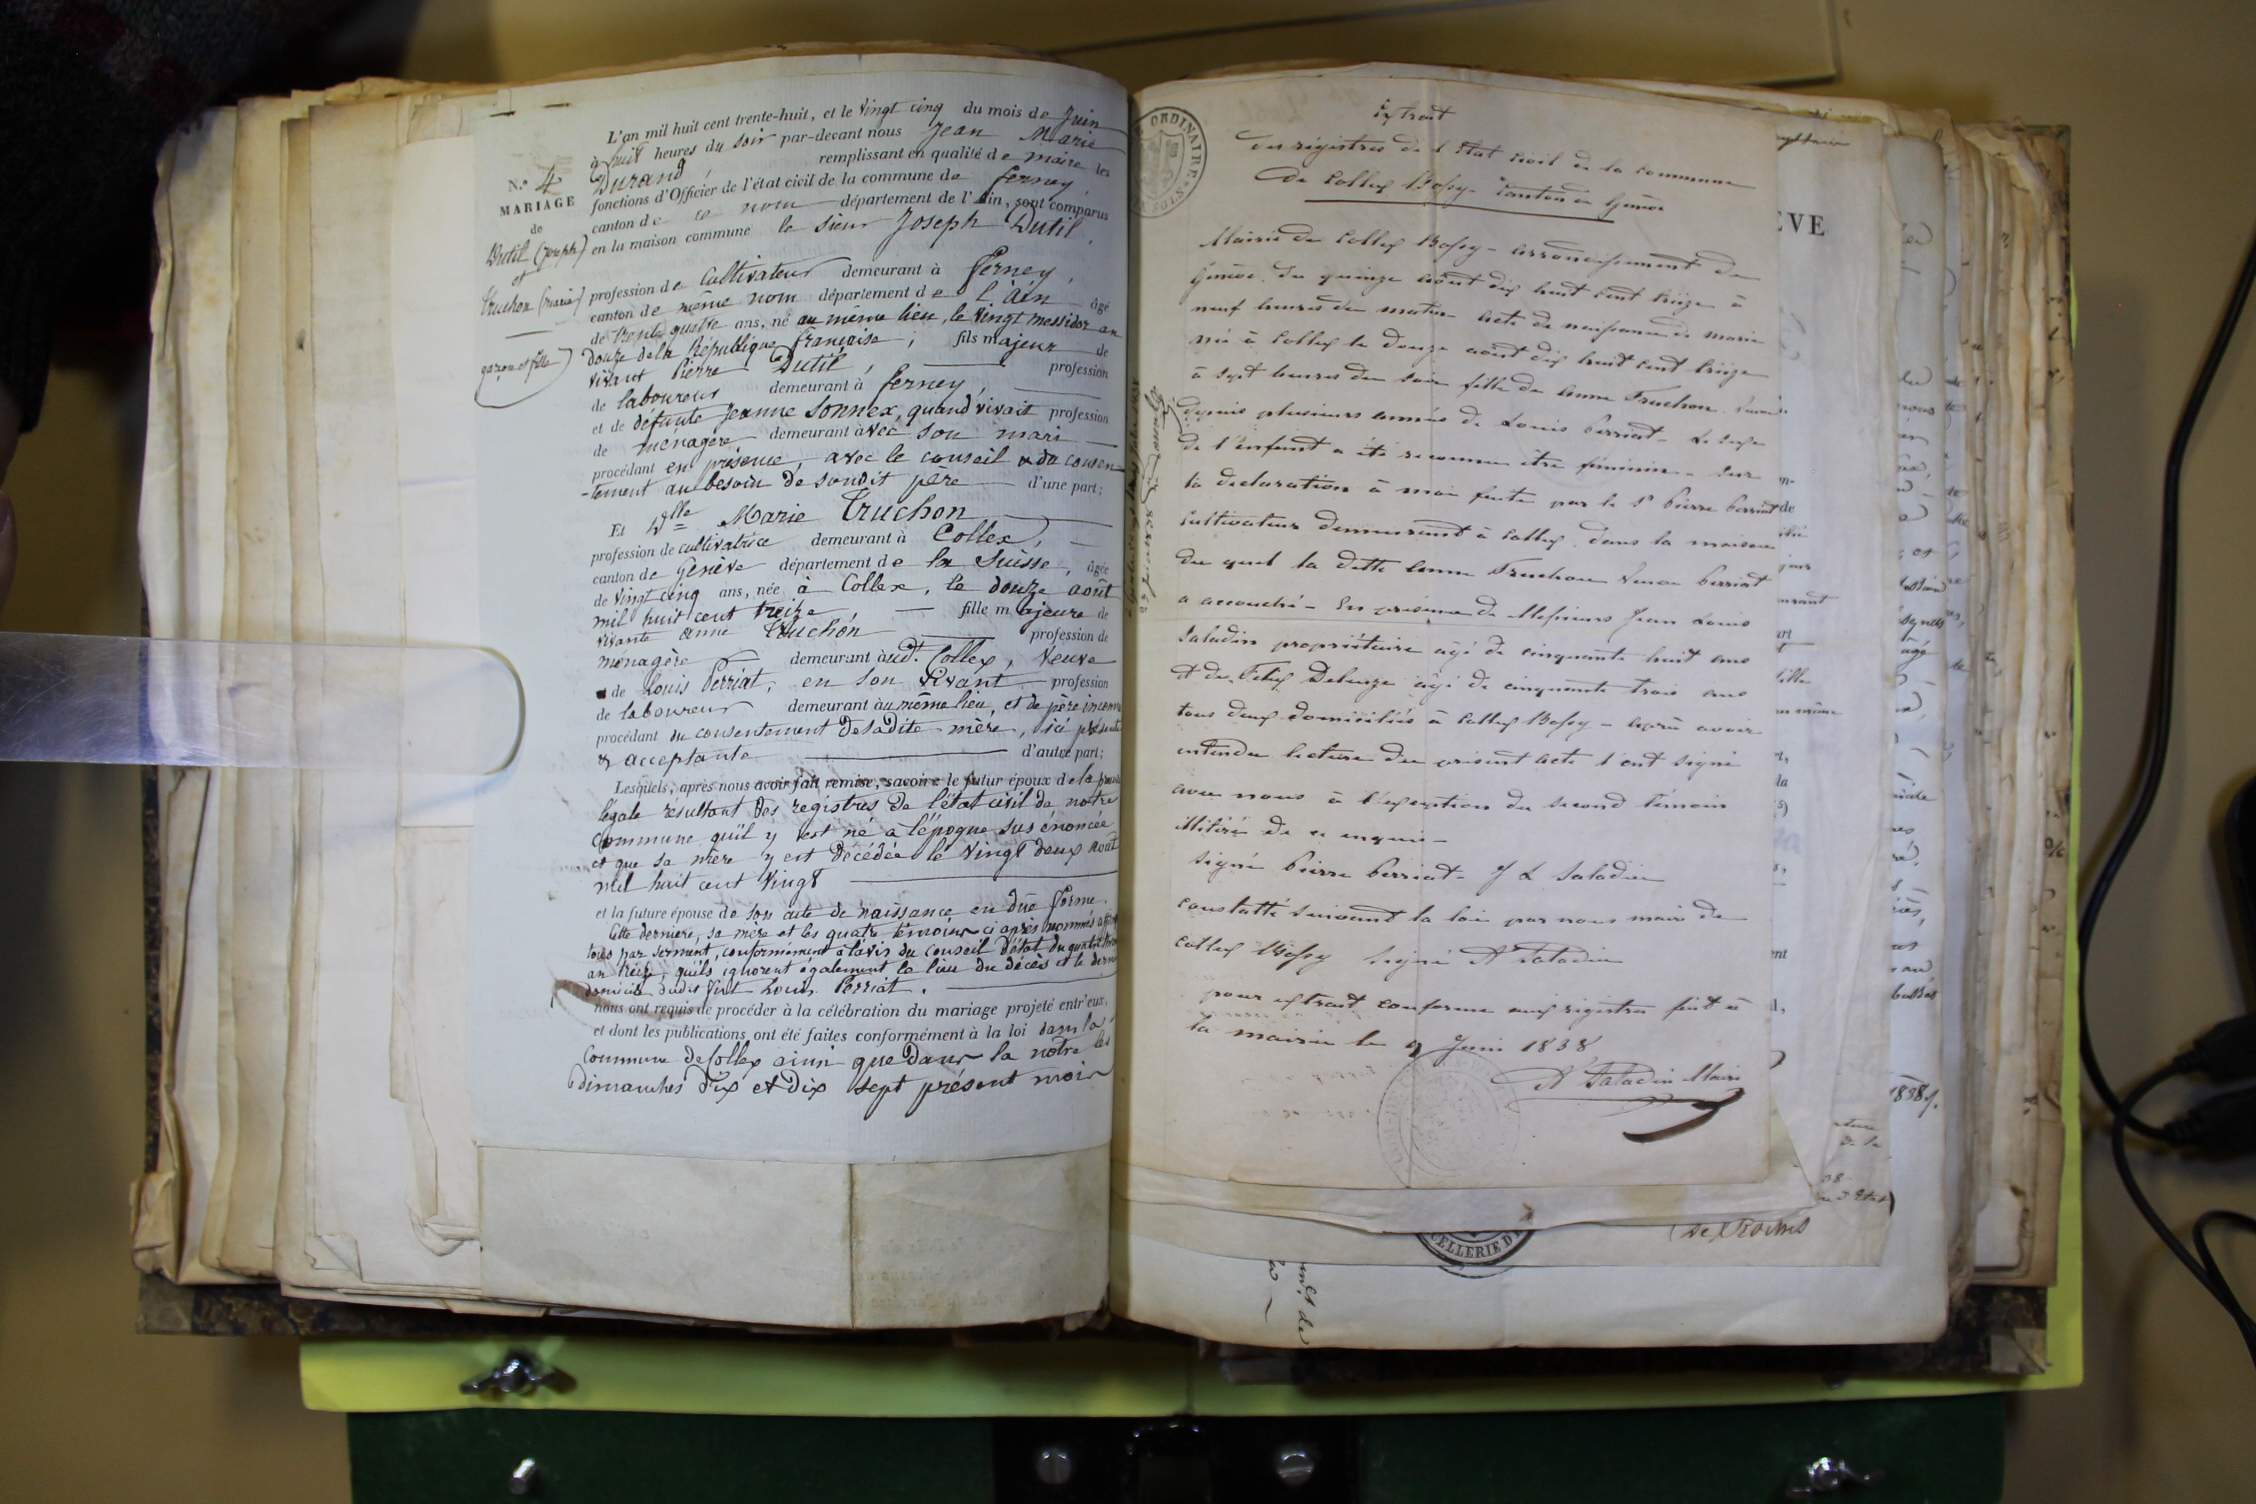 L'an mil huit cent trente-huit, et le vingt cinq du mois de Juin
à huit heures du soir par-devant nous Jean Marie
Durand remplissant en qualité de maire les
fonctions d'Officier de l'état civil de la commune de ferney
canton de ce nom département de l'Ain, sont comparus
en la maison commune le sieur Joseph Dutil,
N.º 4
MARIAGE
de
Dutil (Joseph)
et
Truchon (marie)
garçon et fille
profession de Cultivateur demeurant à ferney,
canton de même nom département de l'Ain âgé
de trente quatre ans, né au même lieu, le vingt messidor an
douze de la République française; fils majeur de
vivant Pierre Dutil, profession
de laboureur demeurant à ferney,
et de défunte Jeanne Sonnex, quand vivait profession
de ménagère demeurant avec son mari
procédant en présence, avec le conseil & du consen
-tement au besoin de sondit père d'une part;
Et Dlle Marie Truchon
profession de cultivatrice demeurant à Collex,
canton de Genève département de la Suisse, âgée
de vingt cinq ans, née à Collex, le douze août
mil huit cent treize, fille majeure de
vivante anne Truchon profession de
ménagère demeurant audt. Collex, veuve
de Louis Perriat, en son vivant profession
de laboureur demeurant au même lieu, et de père inconnu
procédant du consentement de sadite mère, ici présente
& acceptante d'autre part;
Lesquels, après nous avoir fait remise, savoir: le futur époux de la preuve
légale résultant des registres de l'état civil de notre
commune qu'il y est né à l'époque sus énoncée
et que sa mère y est décédée le vingt deux août
mil huit cent vingt
et la future épouse de son acte de naissance en düe forme.
Cette dernière, sa mère et les quatre témoins ci après nommés
tous par serment, conformément à l'avis du conseil d'état du quatre
an treize, qu'ils ignorent également le lieu du décès et le dernier
domicile dudit Louis Perriat.
nous ont requis de procéder à la célébration du mariage projeté entr'eux,
et dont les publications ont été faites conformément à la loi dans la
Commune de Collex ainsi que dans la notre les
dimanches dix et dix sept présent mois
ORDINAIRE
Extrait
des régistres de l'Etat civil de la commune
de Collex Bossy - Canton de Genève
EVE
Mairie de Collex Bossy - arrondissement de
Genève du quinze août dix huit cent treize à
neuf heures du matin acte de naissance de marie
née à Collex le douze août dix huit cent treize
à sept heures du soir fille de Anne Truchon veuve
depuis plusieurs années de Louis Perriat - Le sexe
de l'enfant a été reconnu être féminin - Sur
la déclaration à moi faite par le Sr Pierre Perriat
cultivateur demeurant à Collex, dans la maison
du quel la ditte Anne Truchon veuve Perriat
a accouché - En présence de Messieurs Jean Louis
Saladin propriétaire agé de cinquante huit ans
et de Felix Deluze agé de cinquante trois ans
tous deux domiciliés à Collex Bossy - après avoir
entendu lecture du présent acte l'ont signé
avec nous à l'exception du second témoin
illitéré de ce enquis -
signé Pierre Perriat - J L Saladin
constatté suivant la loi par nous maire de
Collex Bossy signé A Saladin
pour extrait conforme aux registres fait à
la mairie le 9 Juin 1838
A Saladin Maire
CELLERIE D